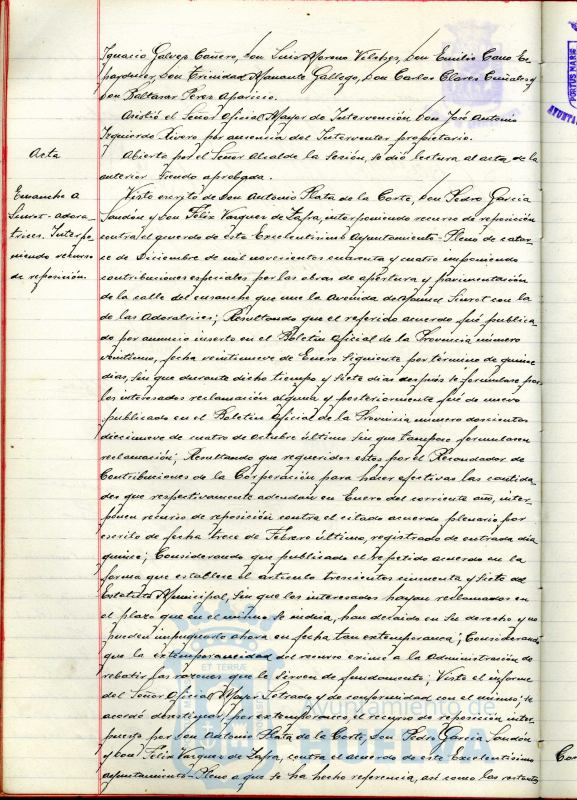 Ignacio Galvez Cañero, Don Luis Moreno Vilches, Don Emilio Cano
Don Trinidad Gallego, Don Carlos Clares y
Don Baltasar Perez Aparicio.
Asistió el Señor Oficial Mayor de Intervención Don José Antonio
Izquierdo Rivero por ausencia del Interventor propietario.
Acta
Abierta por el Señor Alcalde la Sesión, se dió lectura al acta de la
anterior siendo aprobada.
Ensanche a
Siurot-Adora-
trices. Interpo-
niendo recurso
de reposición.
Visto escrito de Don Antonio Plata de la Corte, Don Pedro García
y Don Felix Vazquez de Zafra, interponiendo recurso de reposición
contra el acuerdo de este Excelentisimo Ayuntamiento-Pleno de cator-
ce de Diciembre de mil novecientos cuarenta y cuatro imponiendo
contribuciones especiales por las obras de apertura y pavimentación
de la calle del ensanche que une la Avenida de Manuel Siurot con la
de las Adoratrices; Resultando que el referido acuerdo fué publica-
do por anuncio inserto en el Boletin Oficial de la Provincia número
veintiuno, fecha veintinueve de Enero siguiente por término de quince
dias, sin que durante dicho tiempo y siete dias después se formulase por
los interesados reclamación alguna y posteriormente fué de nuevo
publicado en el Boletin Oficial de la Provincia número doscientos
diecinueve de cuatro de Octubre último sin que tampoco formulasen
reclamación; Resultando que requeridos estos por el Recaudador de
Contribuciones de la Corporación para hacer efectivas las cantida-
des que respectivamente adeudan en Enero del corriente año, inter-
ponen recurso de reposición contra el citado acuerdo plenario por
escrito de fecha trece de Febrero último, registrado de entrada dia
quince; Considerando que publicado el repetido acuerdo en la
forma que establece el articulo trescientos cincuenta y siete del
Estatuto Municipal, sin que los interesados hayan reclamado en
el plazo que en el mismo se indica, han decaido en su derecho y no
pueden impugnarlo ahora en fecha tan extemporanea; Considerando
que la extemporaneidad del recurso exime a la Administración de
rebatir las razones que le sirven de fundamento; Visto el informe
del Señor Oficial Mayor Letrado y de conformidad con el mismo; se
acordó desestimar, por extemporaneo, el recurso de reposición inter-
puesto por Don Antonio Plata de la Corte, Don Pedro García
y Don Felix Vazquez de Zafra, contra el acuerdo de este Excelentisimo
Ayuntamiento-Pleno a que se ha hecho referencia, así como los restantes
ET TERRÆ
Ayuntamiento de
HUELVA
PORTUS MARIS
AYUNT